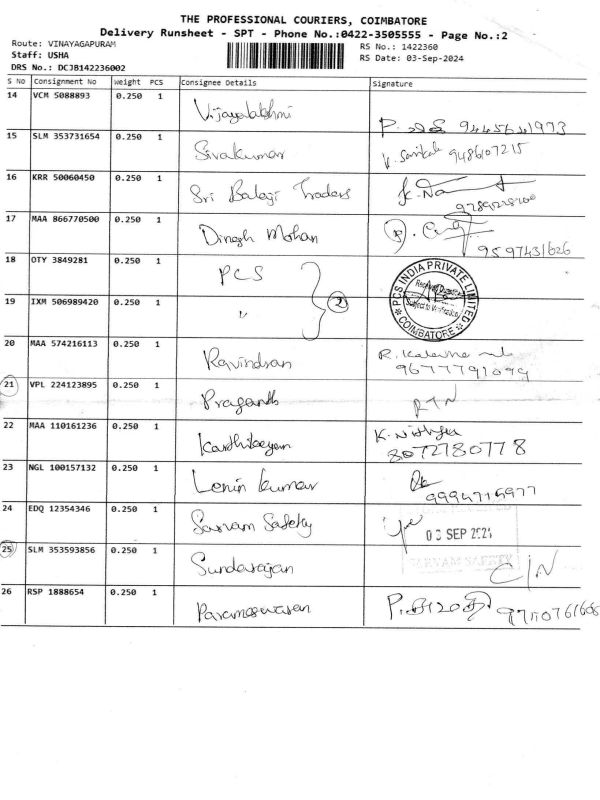 THE PROFESSIONAL COURIERS, COIMBATORE
Delivery Runsheet - SPT - Phone No.:0422-3505555 - Page No.:2
Route: VINAYAGAPURAM
Staff: USHA
DRS No.: DCJB142236002
RS No.: 1422360
RS Date: 03-Sep-2024
S No Consignment No Weight PCS Consignee Details Signature
14 VCM 5088893 0.250 1 Vijayalakshmi 9445641973
15 SLM 353731654 0.250 1 Sivakumar 9486107215
16 KRR 50060450 0.250 1 Sri Balaji Traders
17 MAA 866770500 0.250 1 Dinesh Mohan 9597431626
18 OTY 3849281 0.250 1 PCS
19 IXM 506989420 0.250 1 " 2
PCS INDIA PRIVATE LIMITED
COIMBATORE
20 MAA 574216113 0.250 1 Ravindran 9677791099
21 VPL 224123895 0.250 1 Prasanth RTN
22 MAA 110161236 0.250 1 Karthikeyan K. Nithya 8072780778
23 NGL 100157132 0.250 1 Lenin Kumar
24 EDQ 12354346 0.250 1 Sarvam Safety 03 SEP 2024
SARVAM SAFETY
25 SLM 353593856 0.250 1 Sundarajan C/N
26 RSP 1888654 0.250 1 Parameswaran